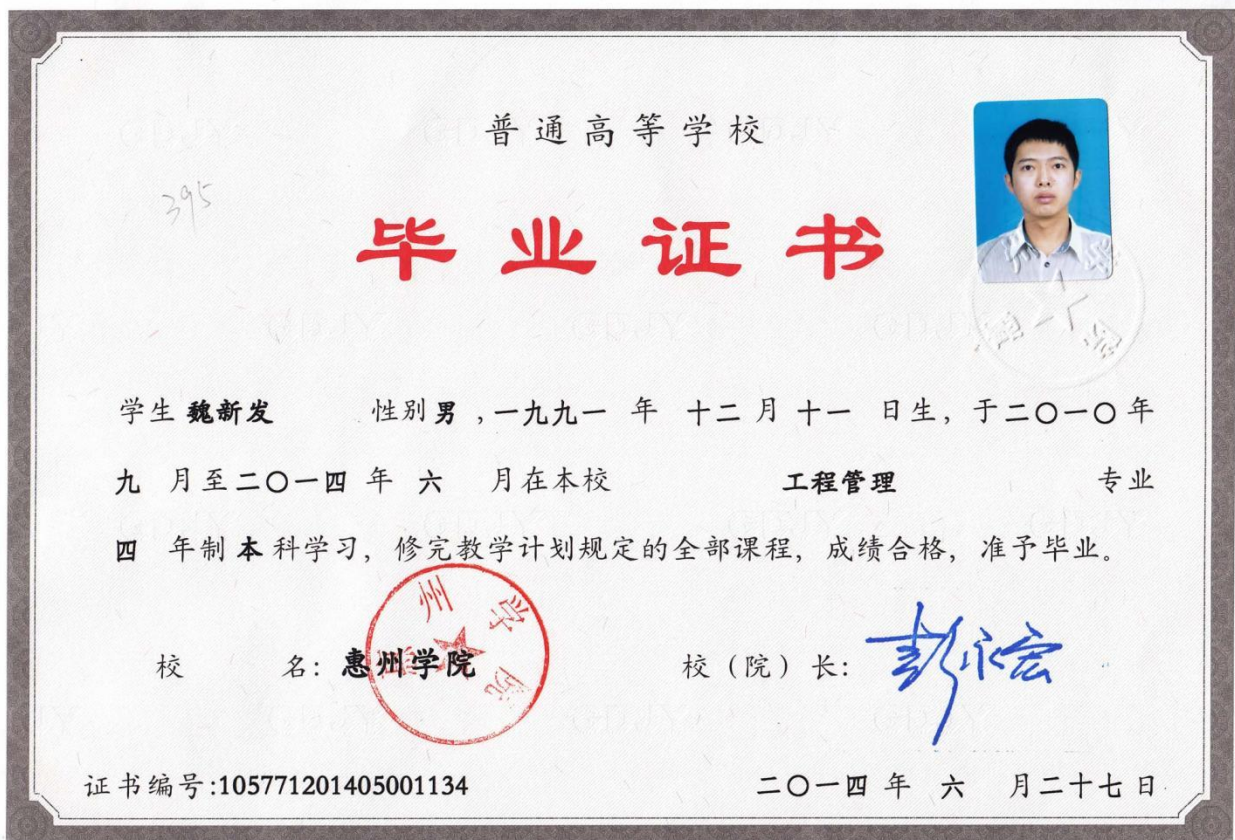 普通高等学校
395
毕业证书
学生 魏新发 性别 男 ,一九九一 年 十二 月 十一 日生, 于二〇一〇年
九 月至二〇一四 年 六 月在本校 工程管理 专业
四 年制 本 科学习, 修完教学计划规定的全部课程, 成绩合格, 准予毕业。
州学院
校 名: 惠州学院 校(院)长: 彭永宏
证书编号:105771201405001134 二〇一四 年 六 月二十七日